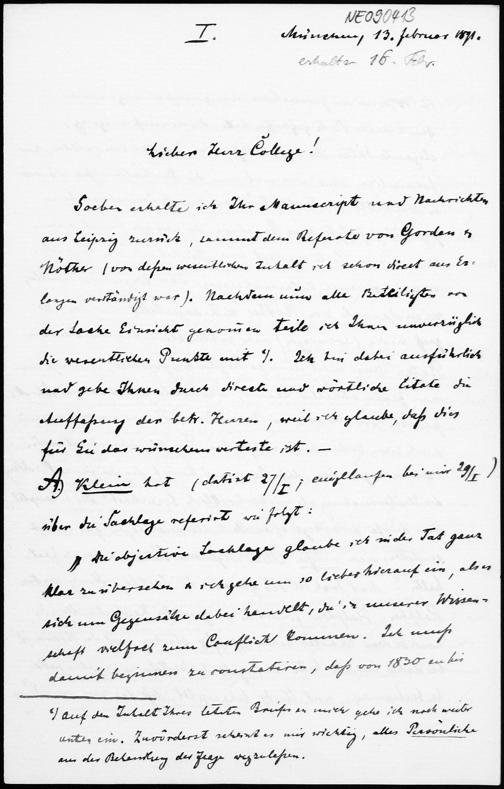 NE090413
I.
München, 13. Februar 1891.
erhalten 16. Febr.
Lieber Herr College!
Soeben erhalte ich Ihr Manuscript und Nachrichten
aus Leipzig zurück, sammt dem Referate von Gordan &
Nöther (von deßen wesentlichem Inhalt ich schon direct aus Er-
langen verständigt war). Nachdem nun alle Betheiligten von
der Sache Einsicht genommen teile ich Ihnen unverzüglich
die wesentlichen Punkte mit ¹). Ich bin dabei ausführlich
und gebe Ihnen durch directe und wörtliche Citate die
Auffaßung der betr. Herren, weil ich glaube, daß dies
für Sie das wünschenswerteste ist. —
A) Klein hat (datirt 27/I; eingelaufen bei mir 29/I)
über die Sachlage referirt wie folgt:
„Die objective Sachlage glaube ich in der Tat ganz
klar zu übersehen & ich gehe um so lieber hierauf ein, als es
sich um Gegensätze dabei handelt, die in unserer Wissen-
schaft vielfach zum Conflict kommen. Ich muß
damit beginnen zu constatiren, daß von 1830 an bis
¹) auf den Inhalt Ihres letzten Briefes an mich gehe ich noch weiter
unten ein. Zuvörderst scheint es mir wichtig, alles Persönliche
aus der Behandlung der Frage wegzulaßen.